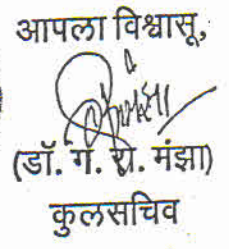 आपला विश्वासू,
(डॉ. ग. रा. मंझा)
कुलसचिव